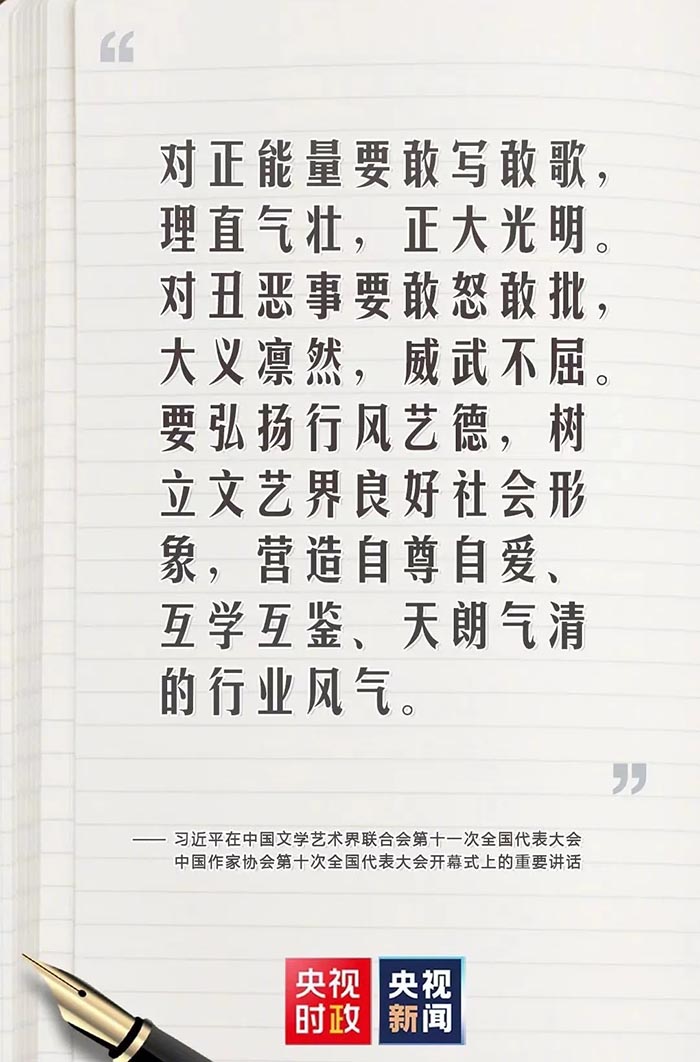 “
对正能量要敢写敢歌，
理直气壮，正大光明。
对丑恶事要敢怒敢批，
大义凛然，威武不屈。
要弘扬行风艺德，树
立文艺界良好社会形
象，营造自尊自爱、
互学互鉴、天朗气清
的行业风气。
”
—— 习近平在中国文学艺术界联合会第十一次全国代表大会
中国作家协会第十次全国代表大会开幕式上的重要讲话
央视
时政
央视
新闻